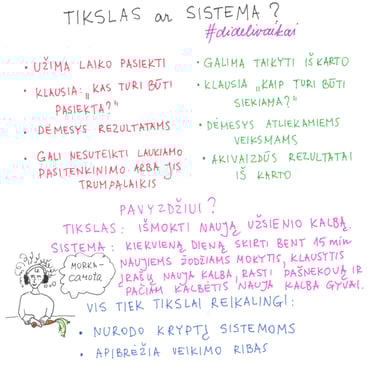 TIKSLAS ar SISTEMA?
#didelivaikai
• UŽIMA LAIKO PASIEKTI
• KLAUSIA: „KAS TURI BŪTI
PASIEKTA?"
• DĖMESYS REZULTATAMS
• GALI NESUTEIKTI LAUKIAMO
PASITENKINIMO ARBA JIS
TRUMPALAIKIS
• GALIMA TAIKYTI IŠ KARTO
• KLAUSIA „KAIP TURI BŪTI
SIEKIAMA?"
• DĖMESYS ATLIEKAMIEMS
VEIKSMAMS
• AKIVAIZDŪS REZULTATAI
IŠ KARTO
PAVYZDŽIUI?
TIKSLAS: IŠMOKTI NAUJĄ UŽSIENIO KALBĄ.
SISTEMA: KIEKVIENĄ DIENĄ SKIRTI BENT 15 min
NAUJIEMS ŽODŽIAMS MOKYTIS, KLAUSYTIS
ĮRAŠŲ NAUJA KALBA, RASTI PAŠNEKOVĄ IR
PAČIAM KALBĖTIS NAUJA KALBA GYVAI.
MORKA-
carrota
VIS TIEK TIKSLAI REIKALINGI:
• NURODO KRYPTĮ SISTEMOMS
• APIBRĖŽIA VEIKIMO RIBAS